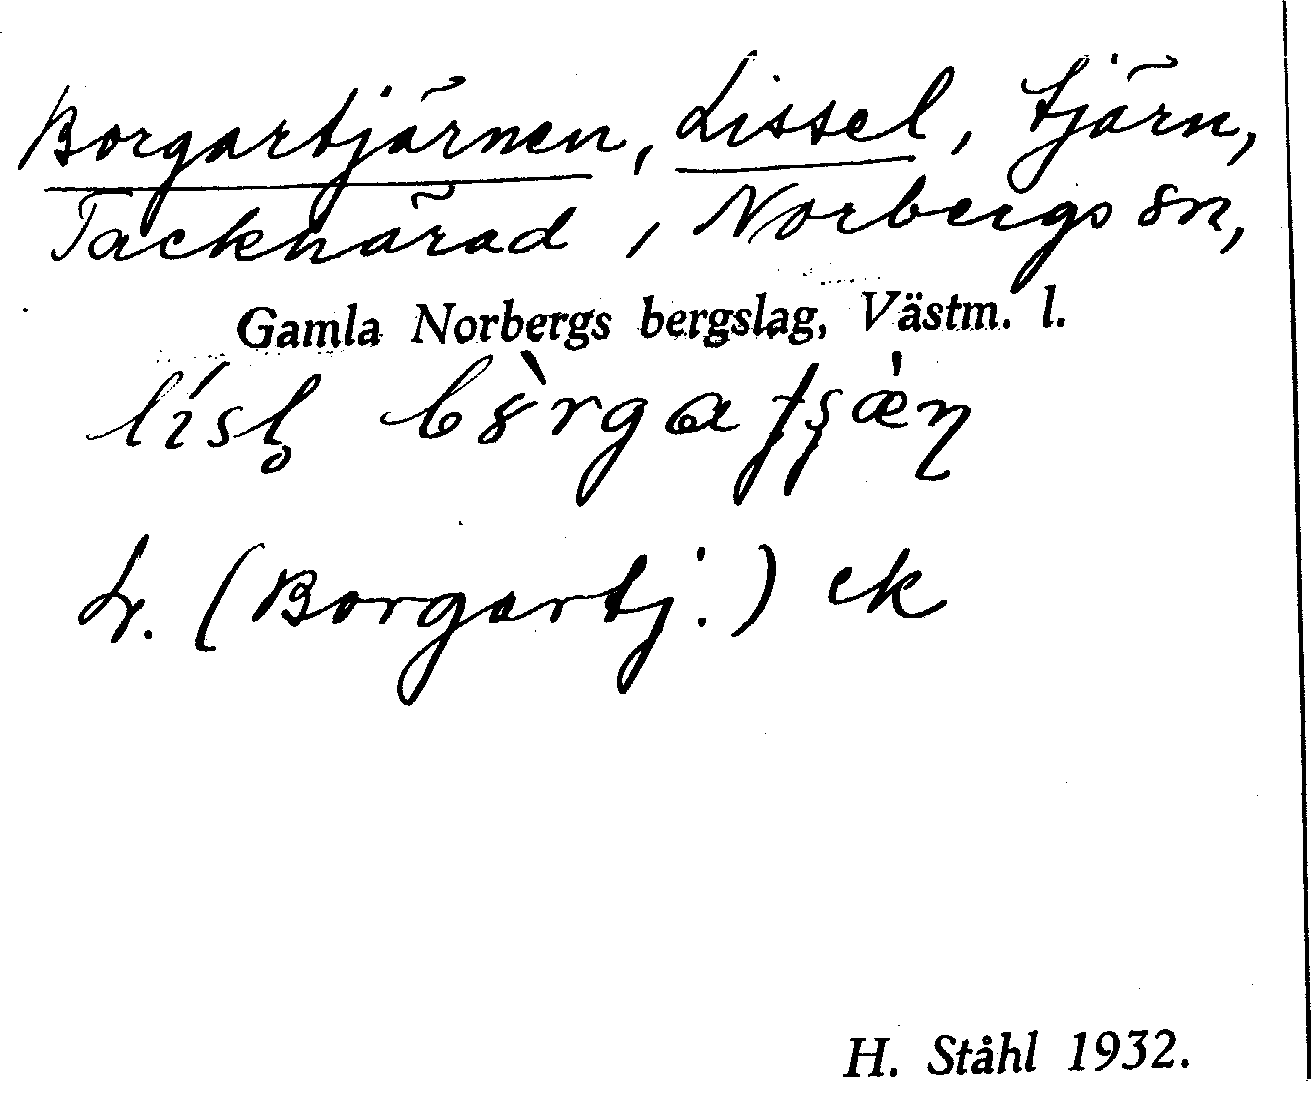 Borgartjärnen, Lissel, tjärn,
Tackhärad, Norbergs sn,
Gamla Norbergs bergslag, Västm. l.
L. (Borgartj.) ek
H. Ståhl 1932.